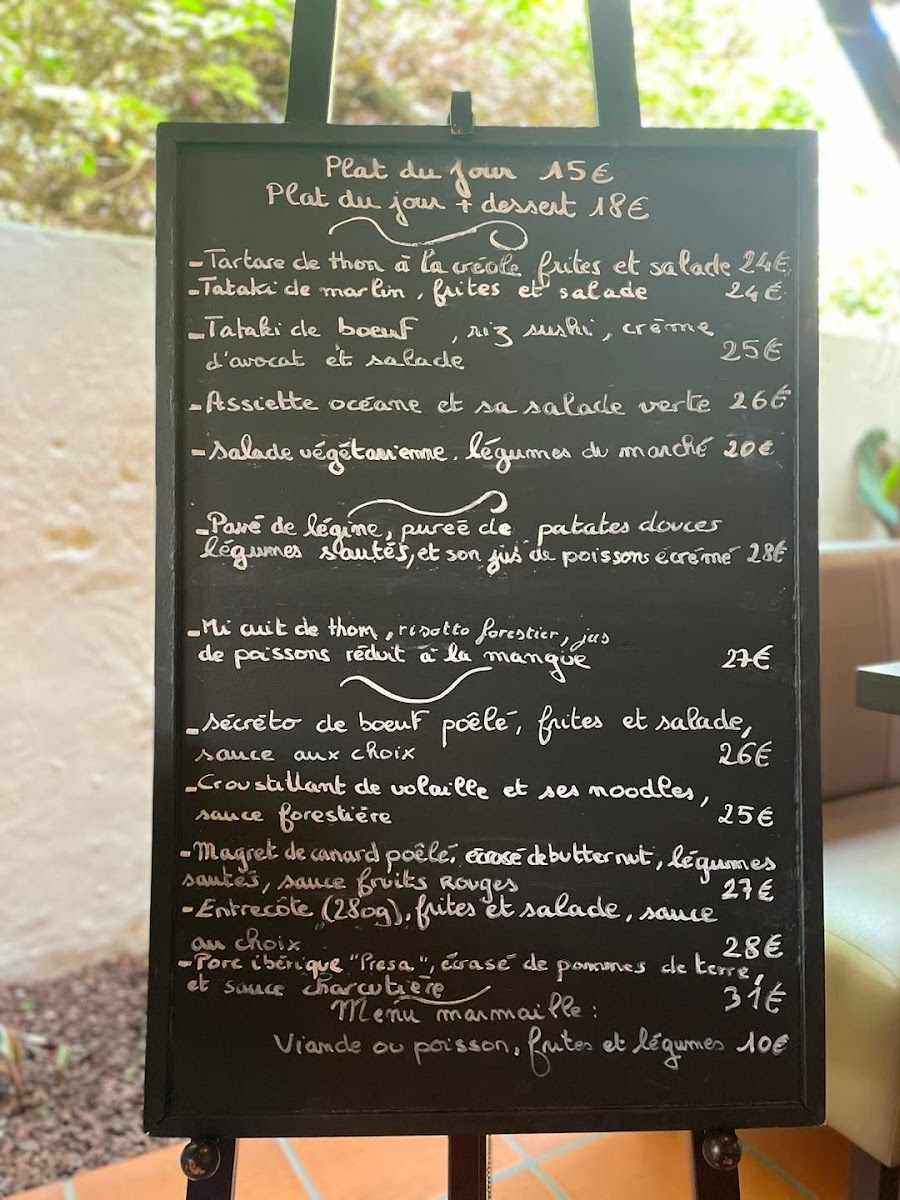 Plat du Jour 15€
Plat du jour + dessert 18€
-Tartare de thon à la créole frites et salade 24€
-Tataki de marlin, frites et salade 24€
-Tataki de boeuf , riz sushi, crème
d'avocat et salade 25€
-Assiette océane et sa salade verte 26€
-Salade végétarienne. légumes du marché 20€
-Pavé de légine, pureé de patates douces
légumes sautés, et son jus de poissons écrémé 28€
-Mi cuit de thon, risotto forestier, jus
de poissons réduit à la mangue 27€
-sécréto de boeuf poêlé, frites et salade,
sauce aux choix 26€
-Croustillant de volaille et ses noodles,
sauce forestière 25€
-Magret de canard poêlé, écrasé de butternut, légumes
sautés, sauce fruits Rouges 27€
-Entrecôte (280g), frites et salade, sauce
au choix 28€
-Porc ibérique "Presa", écrasé de pommes de terre,
et sauce charcutière 31€
Menu marmaille:
Viande ou poisson, frites et légumes 10€